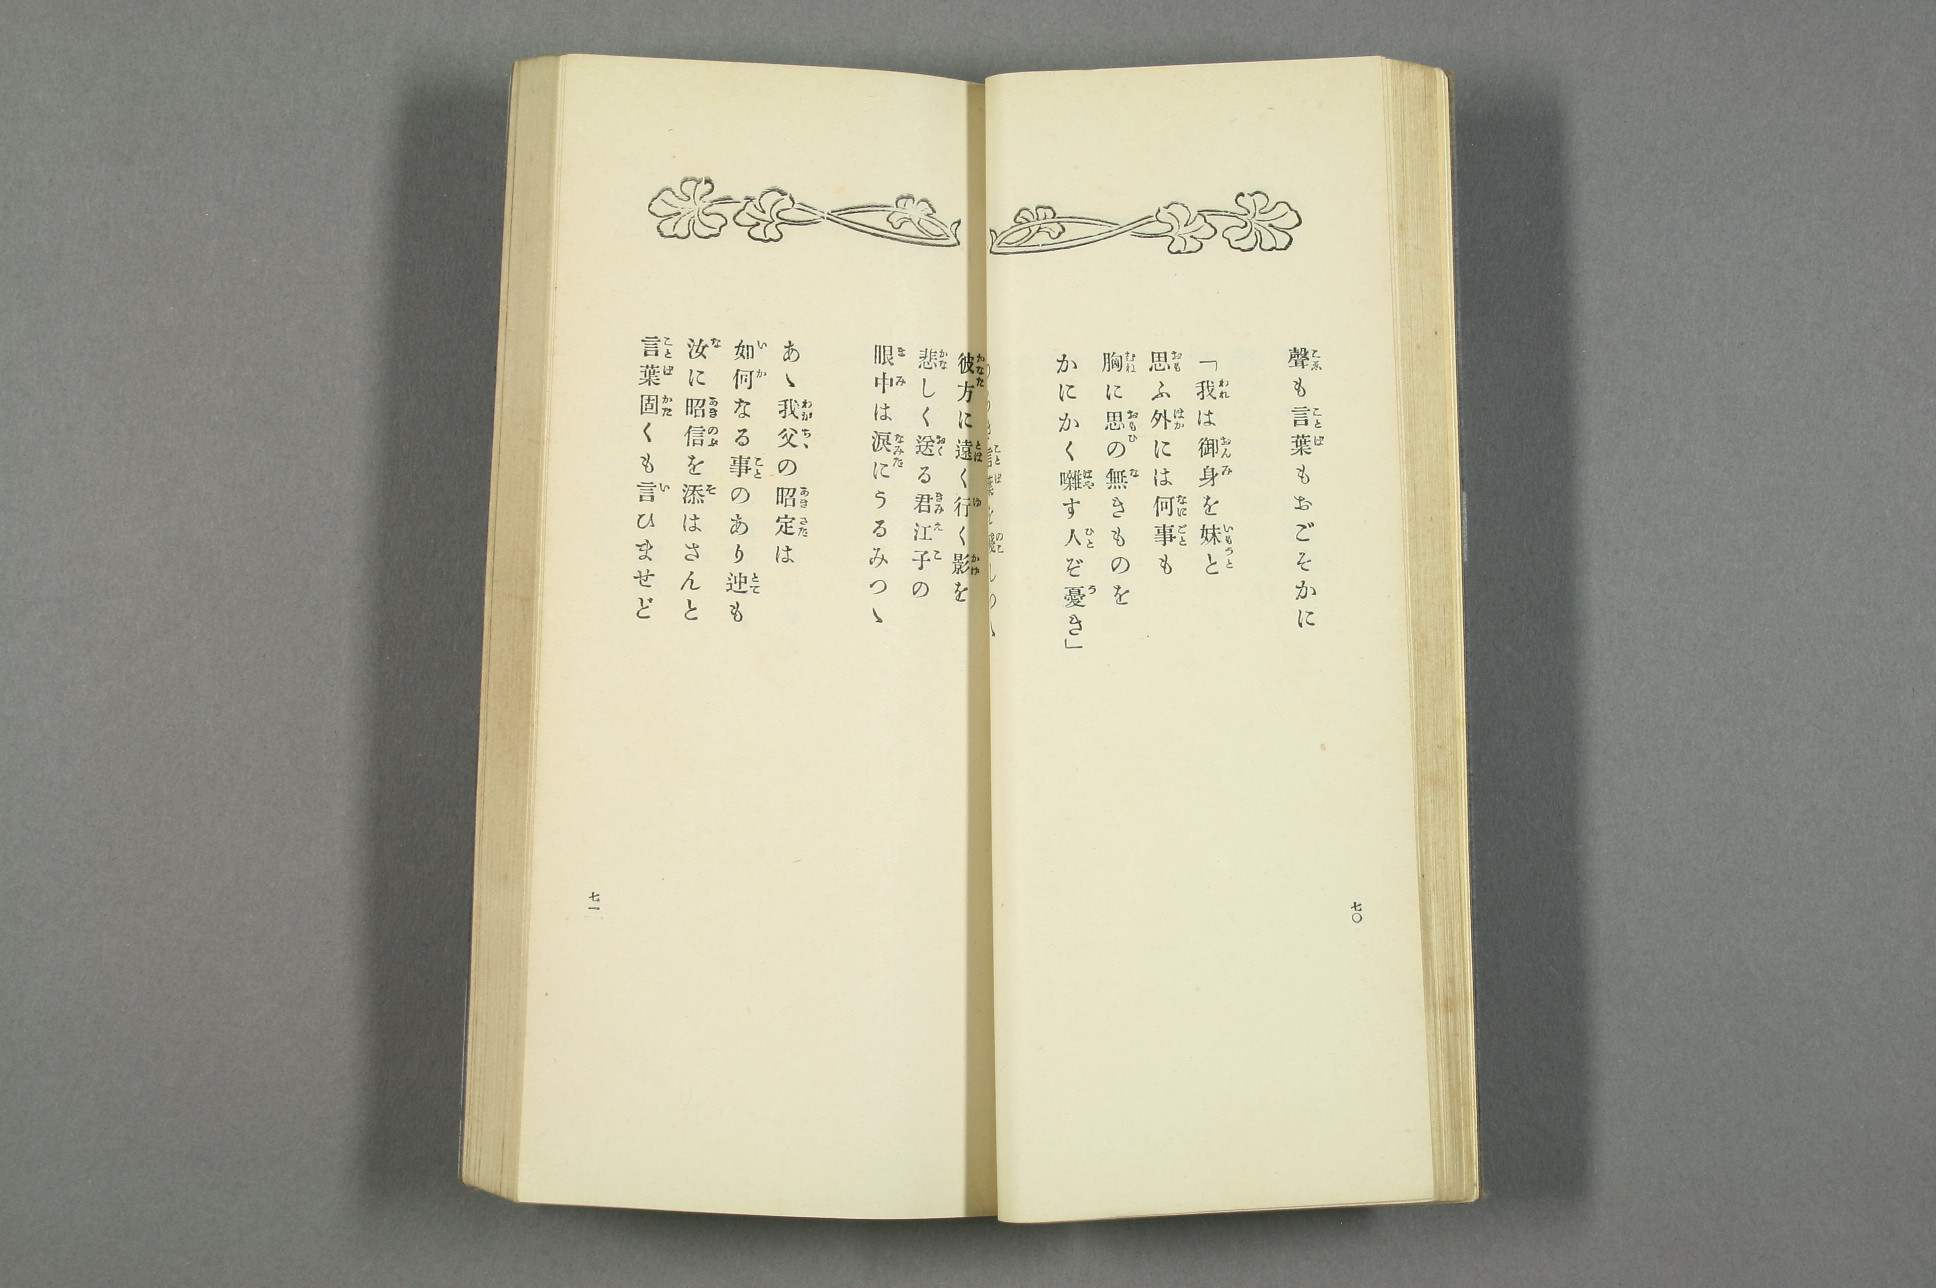 聲も言葉もおごそかに
「我は御身を妹と
思ふ外には何事も
胸に思の無きものを
かにかく囃す人ぞ憂き」
言葉を殘し
七〇
彼方に遠く行く影を
悲しく送る君江子の
眼中は淚にうるみつゝ
あゝ我父の昭定は
如何なる事のあり迚も
汝に昭信を添はさんと
言葉固くも言ひませど
七一